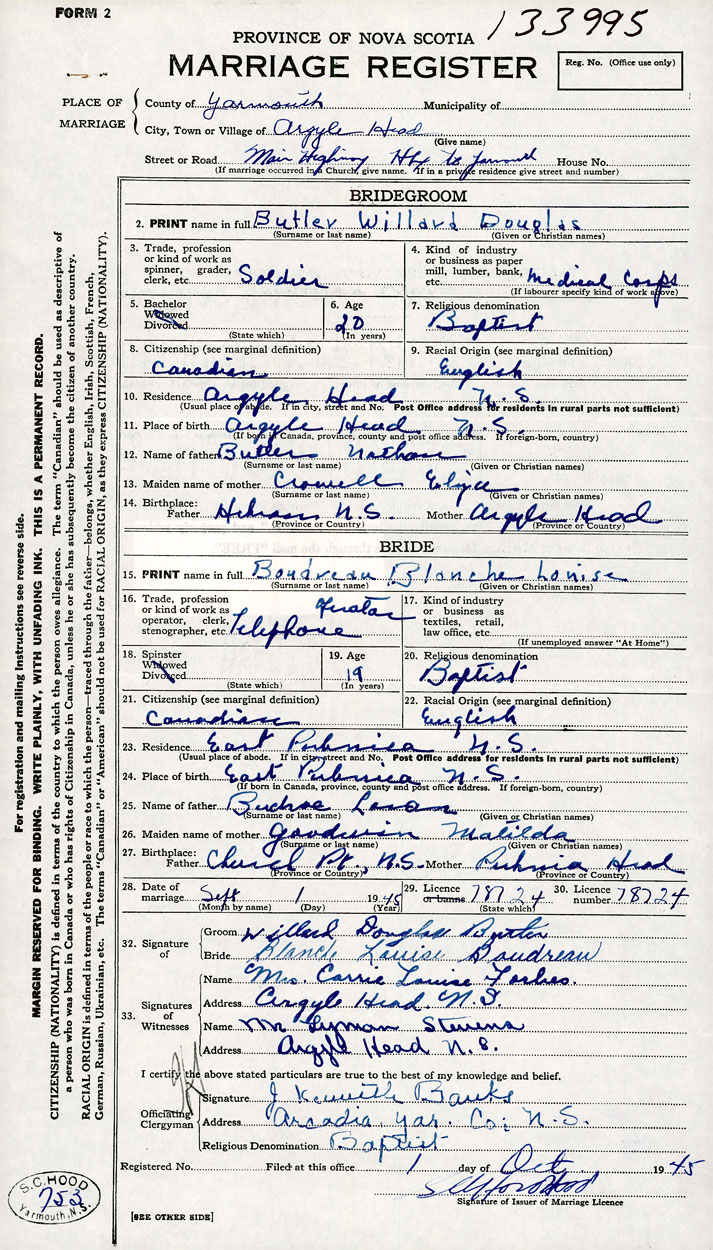 FORM 2
133995
PROVINCE OF NOVA SCOTIA
MARRIAGE REGISTER
Reg. No. (Office use only)
PLACE OF MARRIAGE
County of Yarmouth Municipality of
City, Town or Village of Argyle Head
(Give name)
Street or Road Main Highway Hfx to Yarmouth House No.
(If marriage occurred in a Church, give name. If in a private residence give street and number)
BRIDEGROOM
2. PRINT name in full Butler Willard Douglas
(Surname or last name) (Given or Christian names)
3. Trade, profession or kind of work as spinner, grader, clerk, etc. Soldier
4. Kind of industry or business as paper mill, lumber, bank, etc. Medical Corps
(If labourer specify kind of work above)
5. Bachelor Widowed Divorced (State which)
6. Age 20 (In years)
7. Religious denomination Baptist
8. Citizenship (see marginal definition) Canadian
9. Racial Origin (see marginal definition) English
10. Residence Argyle Head N.S.
(Usual place of abode. If in city, street and No. Post Office address for residents in rural parts not sufficient)
11. Place of birth Argyle Head N.S.
(If born in Canada, province, county and post office address. If foreign-born, country)
12. Name of father Butler Nathan
(Surname or last name) (Given or Christian names)
13. Maiden name of mother Crowell
(Surname or last name) (Given or Christian names)
14. Birthplace: Father Hebron N.S. Mother Argyle Head
(Province or Country) (Province or Country)
BRIDE
15. PRINT name in full Boudreau Blanche Louise
(Surname or last name) (Given or Christian names)
16. Trade, profession or kind of work as operator, clerk, stenographer, etc. Telephone
17. Kind of industry or business as textiles, retail, law office, etc.
(If unemployed answer "At Home")
18. Spinster Widowed Divorced (State which)
19. Age 19 (In years)
20. Religious denomination Baptist
21. Citizenship (see marginal definition) Canadian
22. Racial Origin (see marginal definition) English
23. Residence East Pubnico N.S.
(Usual place of abode. If in city, street and No. Post Office address for residents in rural parts not sufficient)
24. Place of birth East Pubnico N.S.
(If born in Canada, province, county and post office address. If foreign-born, country)
25. Name of father
(Surname or last name) (Given or Christian names)
26. Maiden name of mother Goodwin Matilda
(Surname or last name) (Given or Christian names)
27. Birthplace: Father Church Pt., N.S. Mother Head
(Province or Country) (Province or Country)
28. Date of marriage Sept 1 1945
(Month by name) (Day) (Year)
29. Licence or banns 78724 (State which)
30. Licence number 78724
32. Signature of
Groom Willard Douglas Butler
Bride Blanche Louise Boudreau
33. Signatures of Witnesses
Name Mrs. Carrie Louise Forbes.
Address Argyle Head N.S.
Name Mr Lyman Stevens
Address Argyle Head N.S.
I certify the above stated particulars are true to the best of my knowledge and belief.
Officiating Clergyman
Signature J Kenneth Banks
Address Arcadia, Yar. Co; N.S.
Religious Denomination Baptist
Registered No. Filed at this office 1 day of Oct 1945
Signature of Issuer of Marriage Licence
[SEE OTHER SIDE]
S.C. HOOD
753
Yarmouth, N.S.
For registration and mailing instructions see reverse side.
MARGIN RESERVED FOR BINDING. WRITE PLAINLY, WITH UNFADING INK. THIS IS A PERMANENT RECORD.
CITIZENSHIP (NATIONALITY) is defined in terms of the country to which the person owes allegiance. The term "Canadian" should be used as descriptive of
a person who was born in Canada or who has rights of Citizenship in Canada, unless he or she has subsequently become the citizen of another country.
RACIAL ORIGIN is defined in terms of the people or race to which the person—traced through the father—belongs, whether English, Irish, Scottish, French,
German, Russian, Ukrainian, etc. The terms "Canadian" or "American" should not be used for RACIAL ORIGIN, as they express CITIZENSHIP (NATIONALITY).